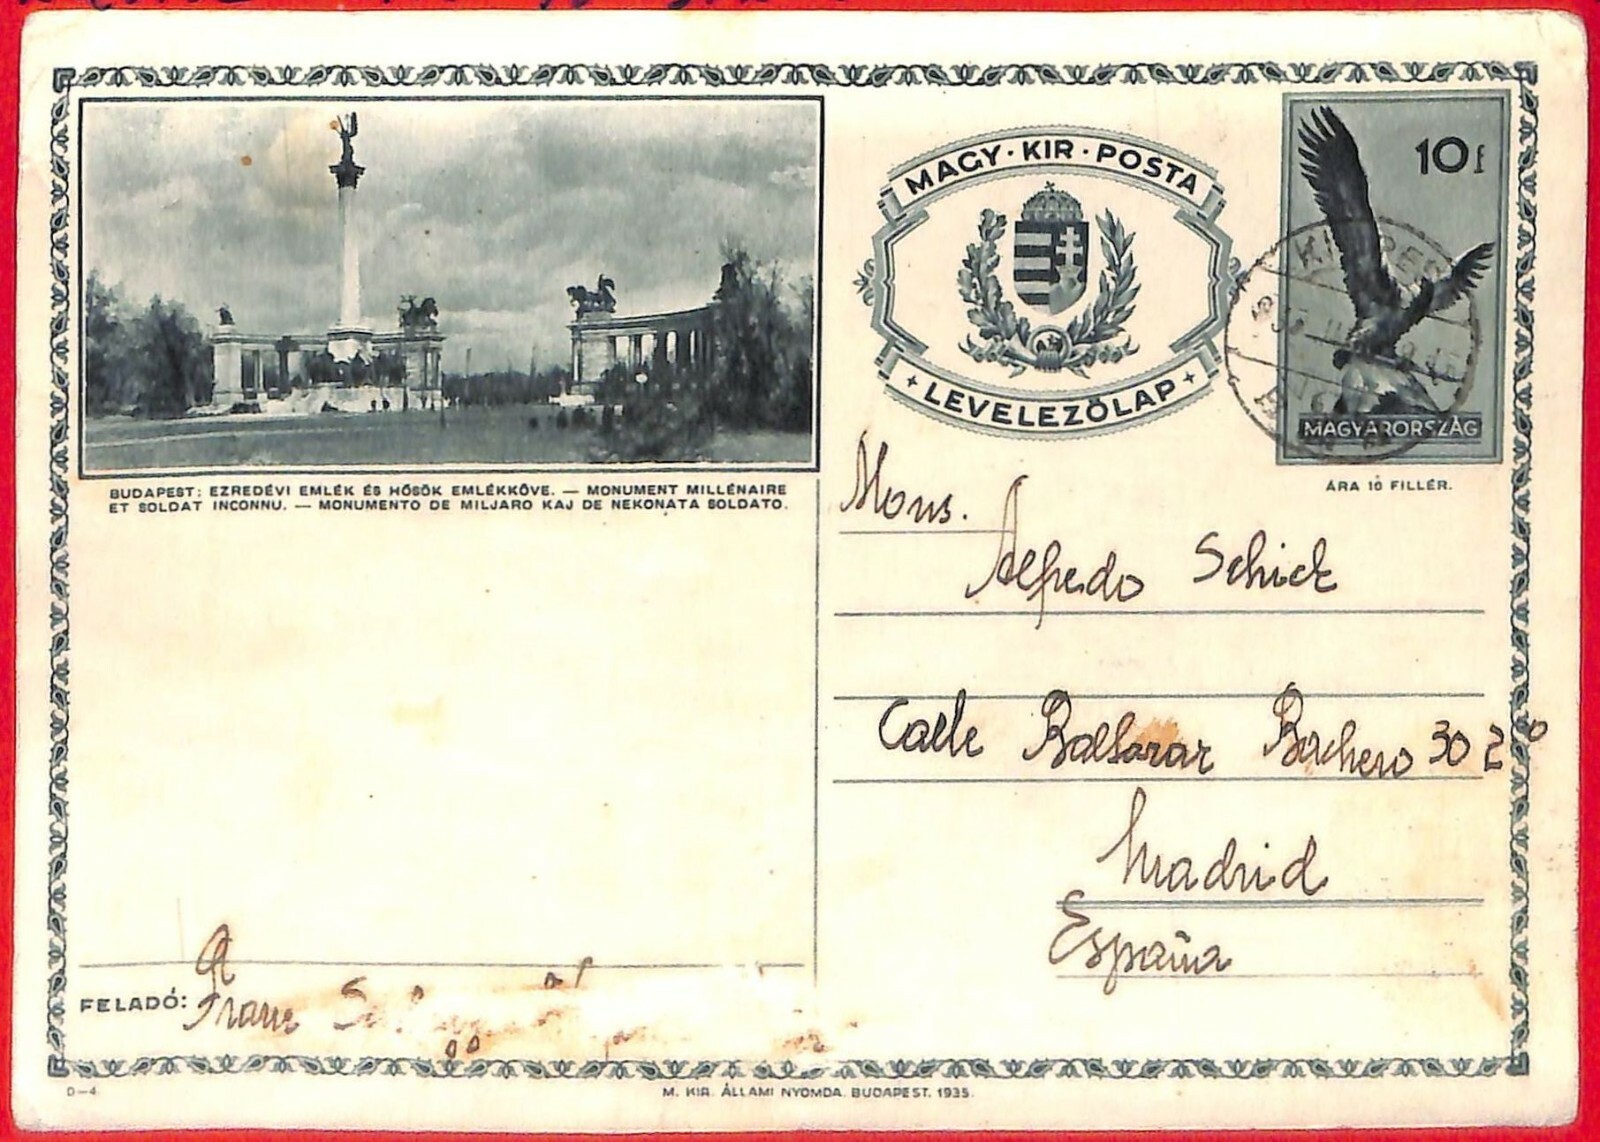 BUDAPEST: EZREDÉVI EMLÉK ÉS HŐSÖK EMLÉKKÖVE. — MONUMENT MILLÉNAIRE
ET SOLDAT INCONNU. — MONUMENTO DE MILJARO KAJ DE NEKONATA SOLDATO.
MAGY · KIR · POSTA
LEVELEZŐLAP
10 f
MAGYARORSZÁG
ÁRA 10 FILLÉR.
Mons.
Alfredo Schick
Calle Baltasar Bachero 30 2º
Madrid
España
FELADÓ: Franz
D—4
M. KIR. ÁLLAMI NYOMDA. BUDAPEST. 1935.